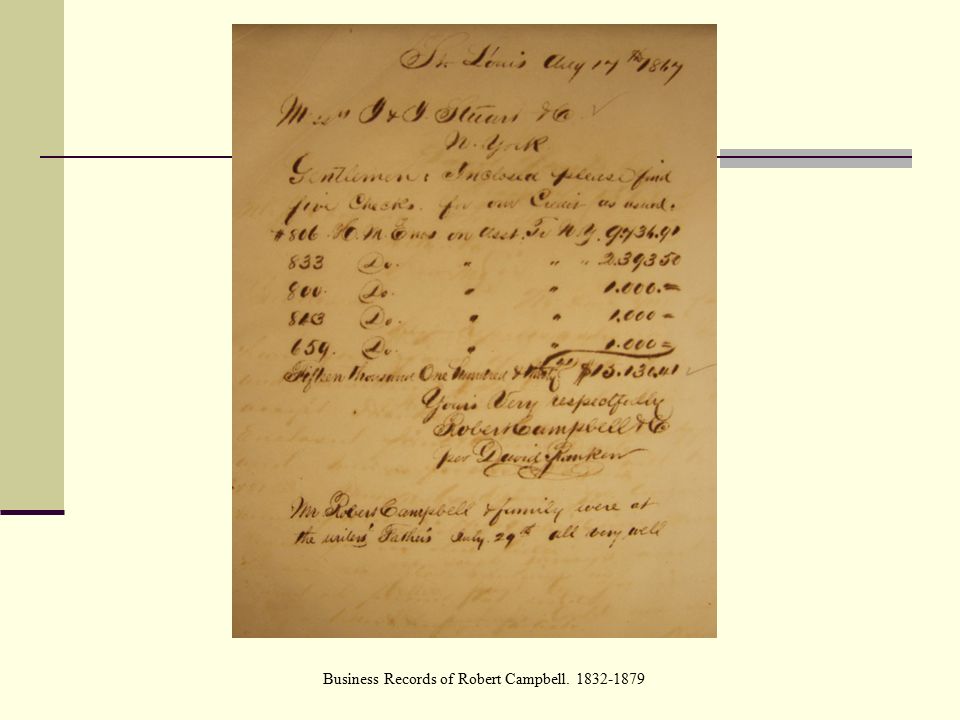 St. Louis Aug 17th 1867
Messrs J & J. Stuart & Co.
N. York.
Gentlemen: Inclosed please find
five Checks. for our Credit as usual.
#806 H. M. Enos on asst. Tr N. Y. 9.736.91
833 Do. " " " 2.393 50
800. Do. " " 1.000.=
813 Do. " " 1.000 =
659. Do. " " 1.000 =
Fifteen Thousand One Hundred & thirty 41 $15.130.41
Yours Very respectfully
Robert Campbell & Co
per David Ranken
Mr Robert Campbell & family were at
the writers' Father's July. 29th all very well
Business Records of Robert Campbell. 1832-1879